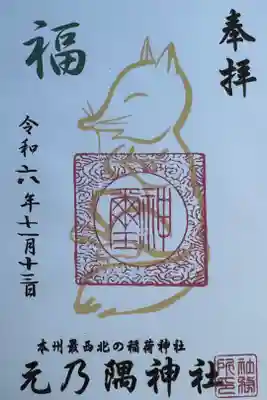 奉拝
福
神璽
令和六年十一月十三日
本州最西北の稲荷神社
元乃隅神社
社務所之印